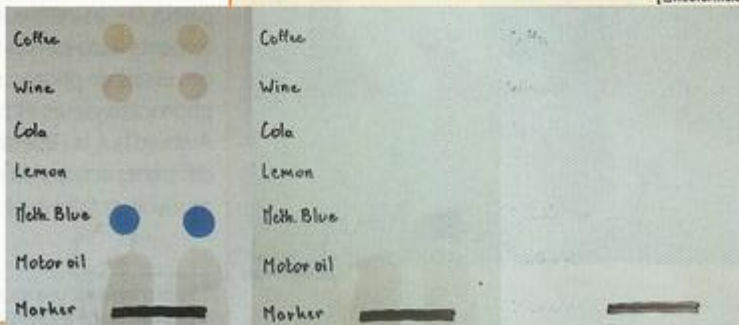 Coffee
Wine
Cola
Lemon
Meth. Blue
Motor oil
Marker
Coffee
Wine
Cola
Lemon
Meth. Blue
Motor oil
Marker